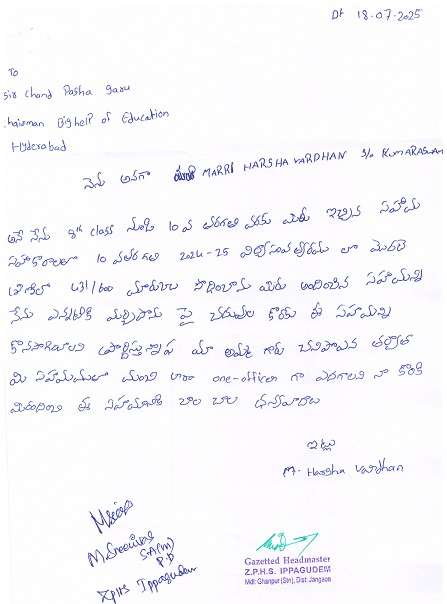 Dt 18-07-2025
To
Sir Chand Pasha garu
chairman Bighelp of Education
Hyderabad
నేను అనగా MARRI HARSHA VARDHAN S/o KUMARASWAM
అనే నేను 8th class నుండి 10 వ తరగతి వరకు మీరు ఇచ్చిన సహాయ
సహకారాలలో 10 వ తరగతి 2024-25 విద్యాసంవత్సరము లో మొదటి
431/600 మార్కులు సాధించాను మీరు అందించిన సహాయాన్ని
నేను ఎన్నటికి పై చదువుల కొరకు ఈ సహాయాన్ని
మా అమ్మ గారు చనిపోయిన తర్వాత
మీ one-officer గా ఎదగాలని నా కోరిక
మీరందించే ఈ సహాయానికి చాల చాల ధన్యవాదాలు
ఇట్లు
M. Harsha Vardhan
M. Sreenivas
SA(M)
P.D
ZPHS Ippagudem
Gazetted Headmaster
Z.P.H.S. IPPAGUDEM
Mdl: Ghanpur (Stn), Dist: Jangaon